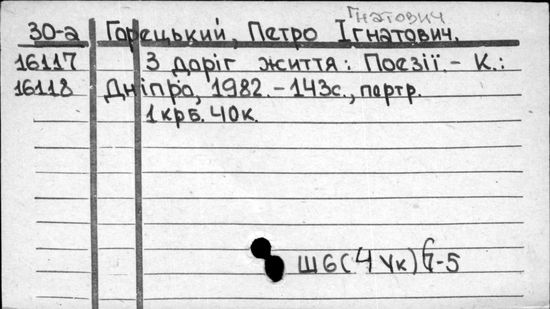 Гнатович
30-а Горецький, Петро Ігнатович.
16117 З доріг життя: Поезії. - К.:
16118 Дніпро, 1982. - 143с., портр.
1 крб. 40к.
Ш6(4Ук)6-5